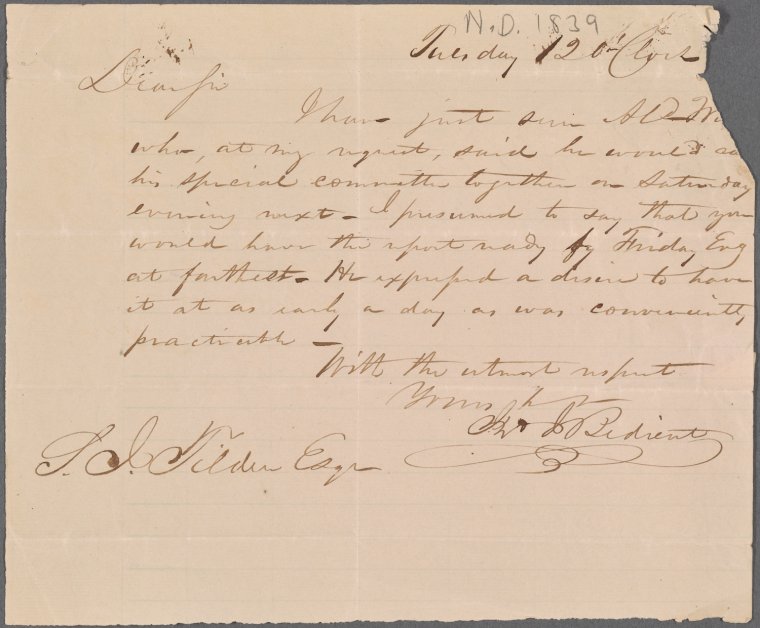 N.D. 1839
Tuesday 12 O'Clock
Dear Sir
I have just seen
who, at my request, said he would
his special committee together on Saturday
evening next - I presumed to say that you
would have the report ready by Friday Evg
at farthest - He expressed a desire to have
it at as early a day as was conveniently
practicable -
With the utmost respect
Yours
Bedient
S. J. Tilden Esqr